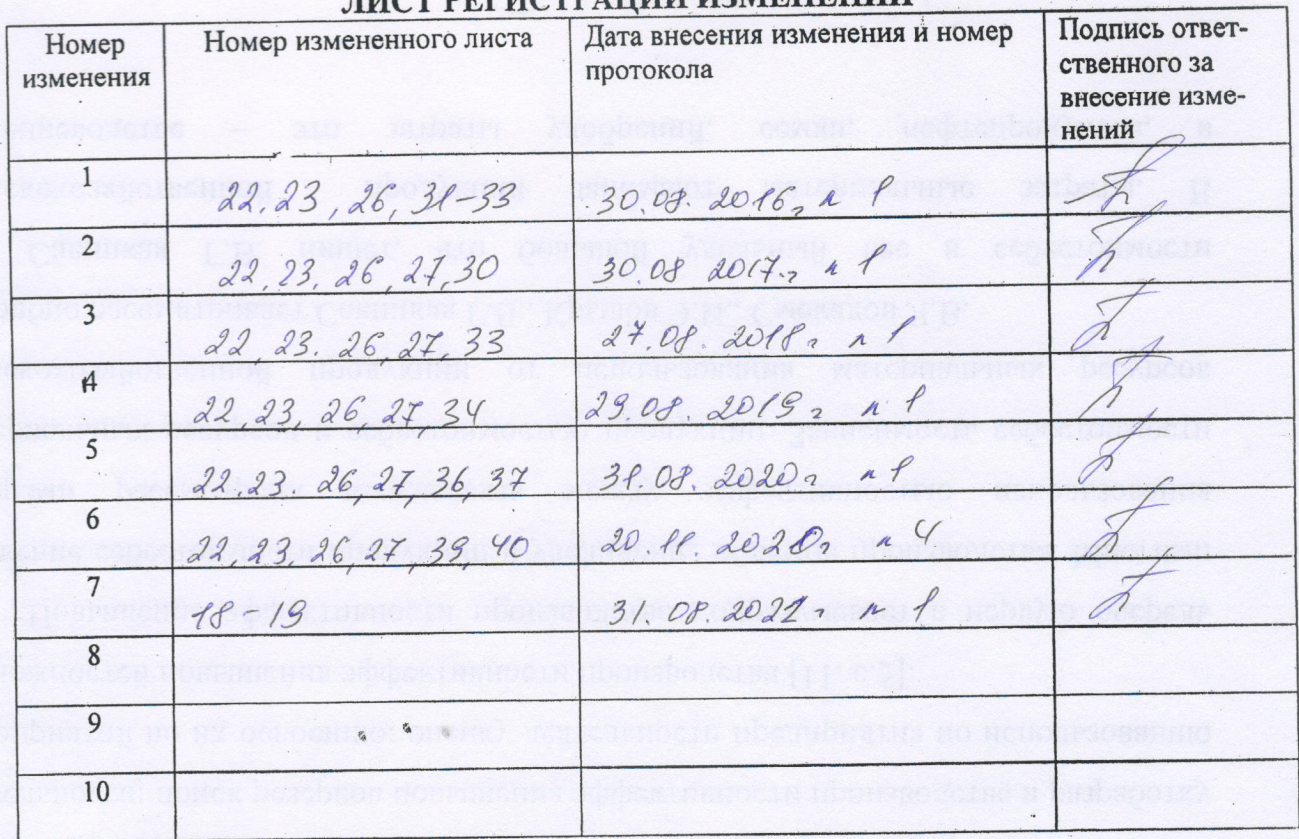 ЛИСТ РЕГИСТРАЦИИ ИЗМЕНЕНИЙ
Номер изменения
Номер измененного листа
Дата внесения изменения и номер протокола
Подпись ответ-
ственного за
внесение изме-
нений
1 22, 23, 26, 31-33 30.08.2016 г п 1
2 22, 23, 26, 27, 30 30.08.2017 г п 1
3 22, 23, 26, 27, 33 27.08.2018 г п 1
4 22, 23, 26, 27, 34 29.08.2019 г п 1
5 22, 23, 26, 27, 36, 37 31.08.2020 г п 1
6 22, 23, 26, 27, 39, 40 20.11.2020 г п 4
7 18-19 31.08.2021 п 1
8
9
10